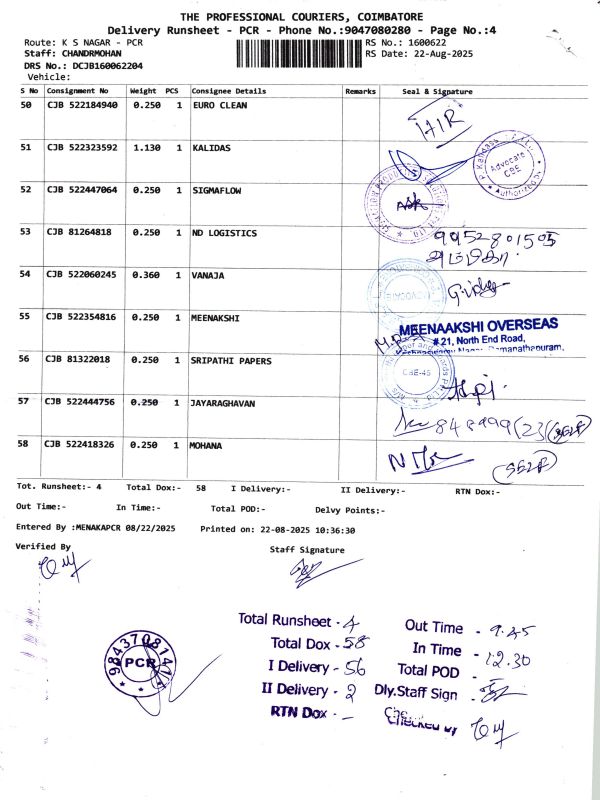 THE PROFESSIONAL COURIERS, COIMBATORE
Delivery Runsheet - PCR - Phone No.:9047080280 - Page No.:4
Route: K S NAGAR - PCR
RS No.: 1600622
Staff: CHANDRMOHAN
RS Date: 22-Aug-2025
DRS No.: DCJB160062204
Vehicle:
S No Consignment No Weight PCS Consignee Details Remarks Seal & Signature
50 CJB 522184940 0.250 1 EURO CLEAN
HIR
51 CJB 522323592 1.130 1 KALIDAS
Advocate
CBE
52 CJB 522447064 0.250 1 SIGMAFLOW
53 CJB 81264818 0.250 1 ND LOGISTICS
54 CJB 522060245 0.360 1 VANAJA
55 CJB 522354816 0.250 1 MEENAKSHI
MEENAAKSHI OVERSEAS
#21, North End Road,
Ramanathapuram,
56 CJB 81322018 0.250 1 SRIPATHI PAPERS
CBE-45
57 CJB 522444756 0.250 1 JAYARAGHAVAN
(SELF)
58 CJB 522418326 0.250 1 MOHANA
(SELF)
Tot. Runsheet:- 4 Total Dox:- 58 I Delivery:- II Delivery:- RTN Dox:-
Out Time:- In Time:- Total POD:- Delvy Points:-
Entered By :MENAKAPCR 08/22/2025 Printed on: 22-08-2025 10:36:30
Verified By
Staff Signature
Total Runsheet - 4
Total Dox - 58
I Delivery - 56
II Delivery - 2
RTN Dox -
Out Time - 9.45
In Time - 12.30
Total POD -
Dly.Staff Sign -
Checked by
PCR